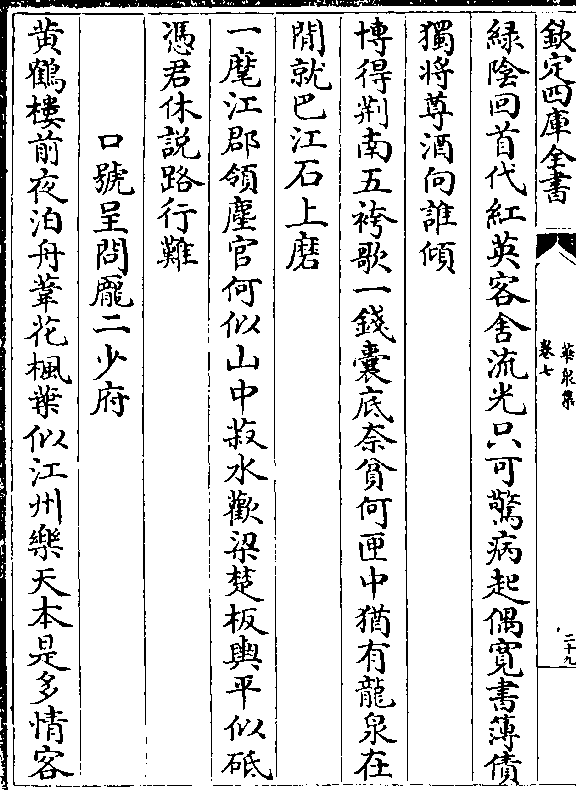 欽定四庫全書
華泉集
卷七
二十九
緑陰回首代紅英客舍流光只可驚病起偶寛書薄債
獨將尊酒向誰傾
博得荆南五袴歌一錢囊底奈貧何匣中猶有龍泉在
閒就巴江石上磨
一麾江郡領塵官何似山中菽水歡梁楚板輿平似砥
憑君休説路行難
口號呈問龎二少府
黄鶴樓前夜泊舟葦花楓葉似江州樂天本是多情客